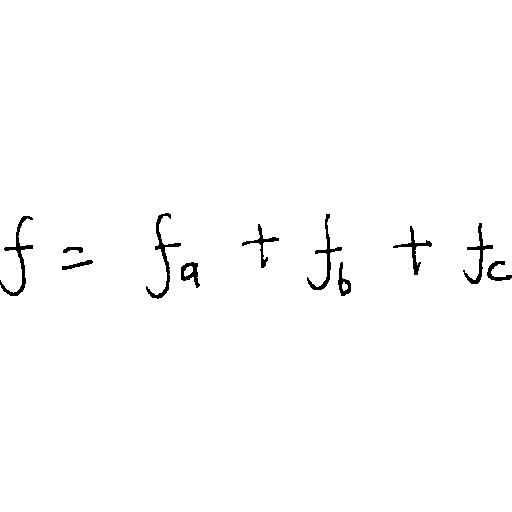 f = f_a + f_b + f_c